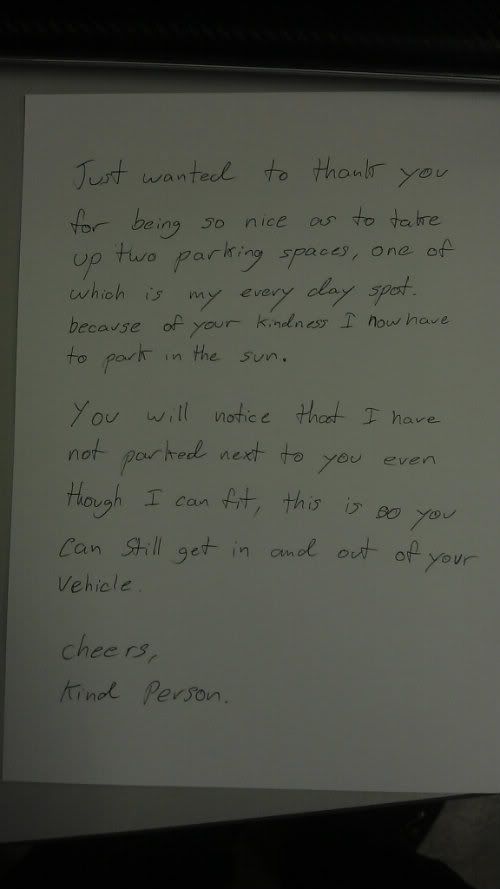 Just wanted to thank you
for being so nice as to take
up two parking spaces, one of
which is my every day spot.
because of your kindness I now have
to park in the sun.
You will notice that I have
not parked next to you even
though I can fit, this is so you
can still get in and out of your
vehicle.
cheers,
Kind Person.